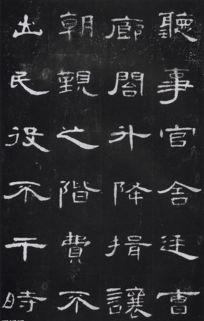 聽事官舍廷曹
廊閣升降揖讓
朝覲之階費不
出民役不干時